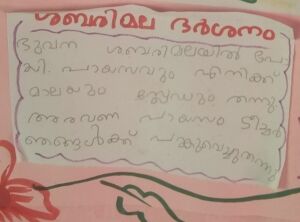 ശബരിമല ദർശനം
ഭുവന ശബരിമലയിൽ പോ
യി. പായസവും എനിക്ക്
മാലയും ബ്രേഡും തന്നു
അരവണ പായസം ടീച്ചർ
ഞങ്ങൾക്ക് പങ്കുവെച്ചുതന്നു